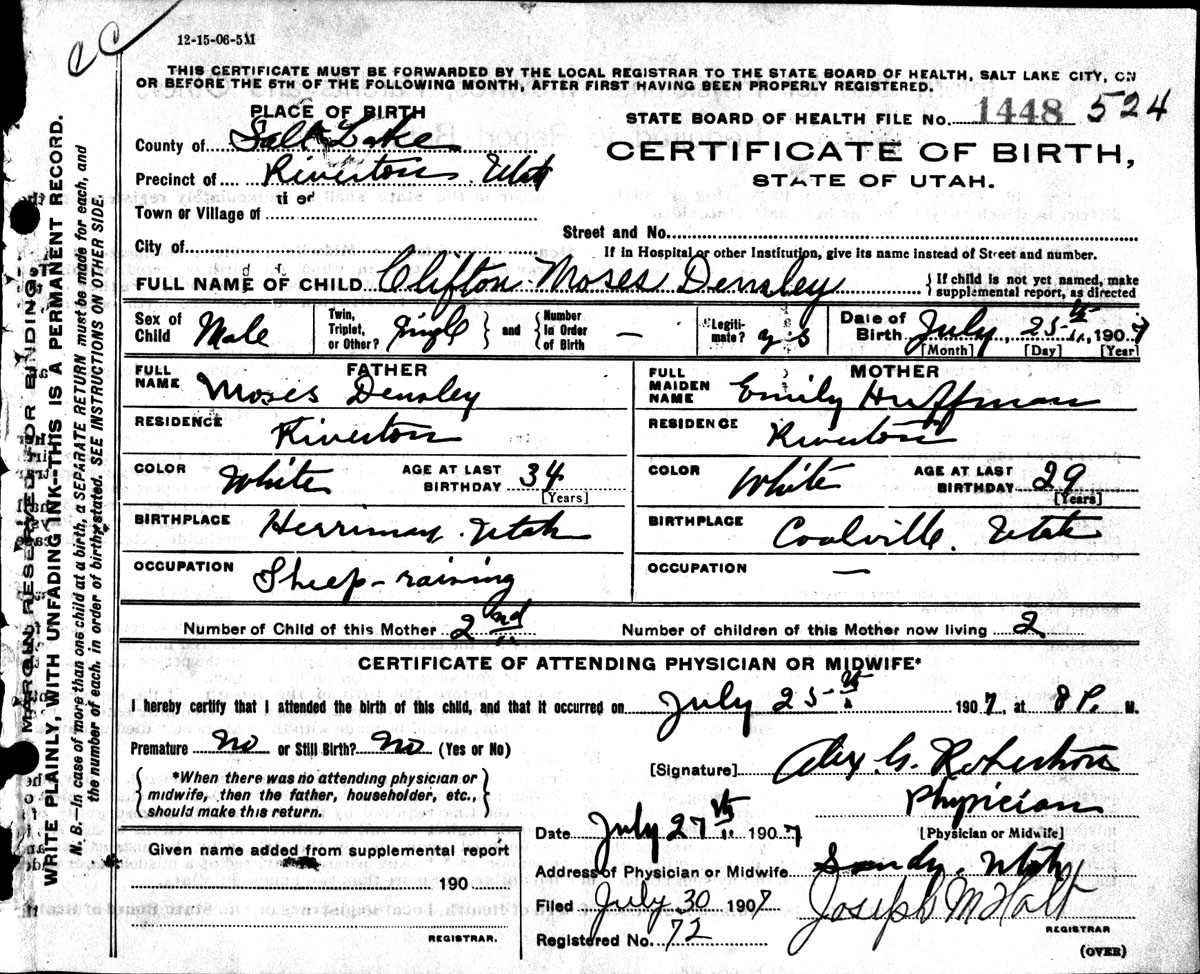 12-15-06-5M
THIS CERTIFICATE MUST BE FORWARDED BY THE LOCAL REGISTRAR TO THE STATE BOARD OF HEALTH, SALT LAKE CITY, ON
OR BEFORE THE 5TH OF THE FOLLOWING MONTH, AFTER FIRST HAVING BEEN PROPERLY REGISTERED.
PLACE OF BIRTH
STATE BOARD OF HEALTH FILE No. 1448 524
County of Salt Lake
CERTIFICATE OF BIRTH,
Precinct of Riverton Utah
STATE OF UTAH.
Town or Village of
Street and No.
City of
If in Hospital or other Institution, give its name instead of Street and number.
FULL NAME OF CHILD Clifton Moses Densley { If child is not yet named, make
supplemental report, as directed
Sex of Child Male
Twin, Triplet, or Other? Single } and { Number in Order of Birth —
Legitimate? yes
Date of Birth July 25th, 1907
[Month] [Day] [Year]
FATHER
FULL NAME Moses Densley
RESIDENCE Riverton
COLOR White AGE AT LAST BIRTHDAY 34 [Years]
BIRTHPLACE Herriman Utah
OCCUPATION Sheep-raising
MOTHER
FULL MAIDEN NAME Emily Huffman
RESIDENCE Riverton
COLOR White AGE AT LAST BIRTHDAY 29 [Years]
BIRTHPLACE Coalville. Utah
OCCUPATION —
Number of Child of this Mother 2nd Number of children of this Mother now living 2
CERTIFICATE OF ATTENDING PHYSICIAN OR MIDWIFE*
I hereby certify that I attended the birth of this child, and that it occurred on July 25th 1907, at 8 P. M.
Premature No or Still Birth? No (Yes or No)
[Signature] Alex. G. Robertson
*When there was no attending physician or
midwife, then the father, householder, etc.,
should make this return.
Physician
[Physician or Midwife]
Date July 27th 1907
Given name added from supplemental report
Address of Physician or Midwife Sandy. Utah
190
Filed July 30 1907 Joseph M Holt
REGISTRAR
REGISTRAR.
Registered No. 72
(OVER)
MARGIN RESERVED FOR BINDING
WRITE PLAINLY, WITH UNFADING INK--THIS IS A PERMANENT RECORD.
N. B.—In case of more than one child at a birth, a SEPARATE RETURN must be made for each, and
the number of each, in order of birth, stated. SEE INSTRUCTIONS ON OTHER SIDE.